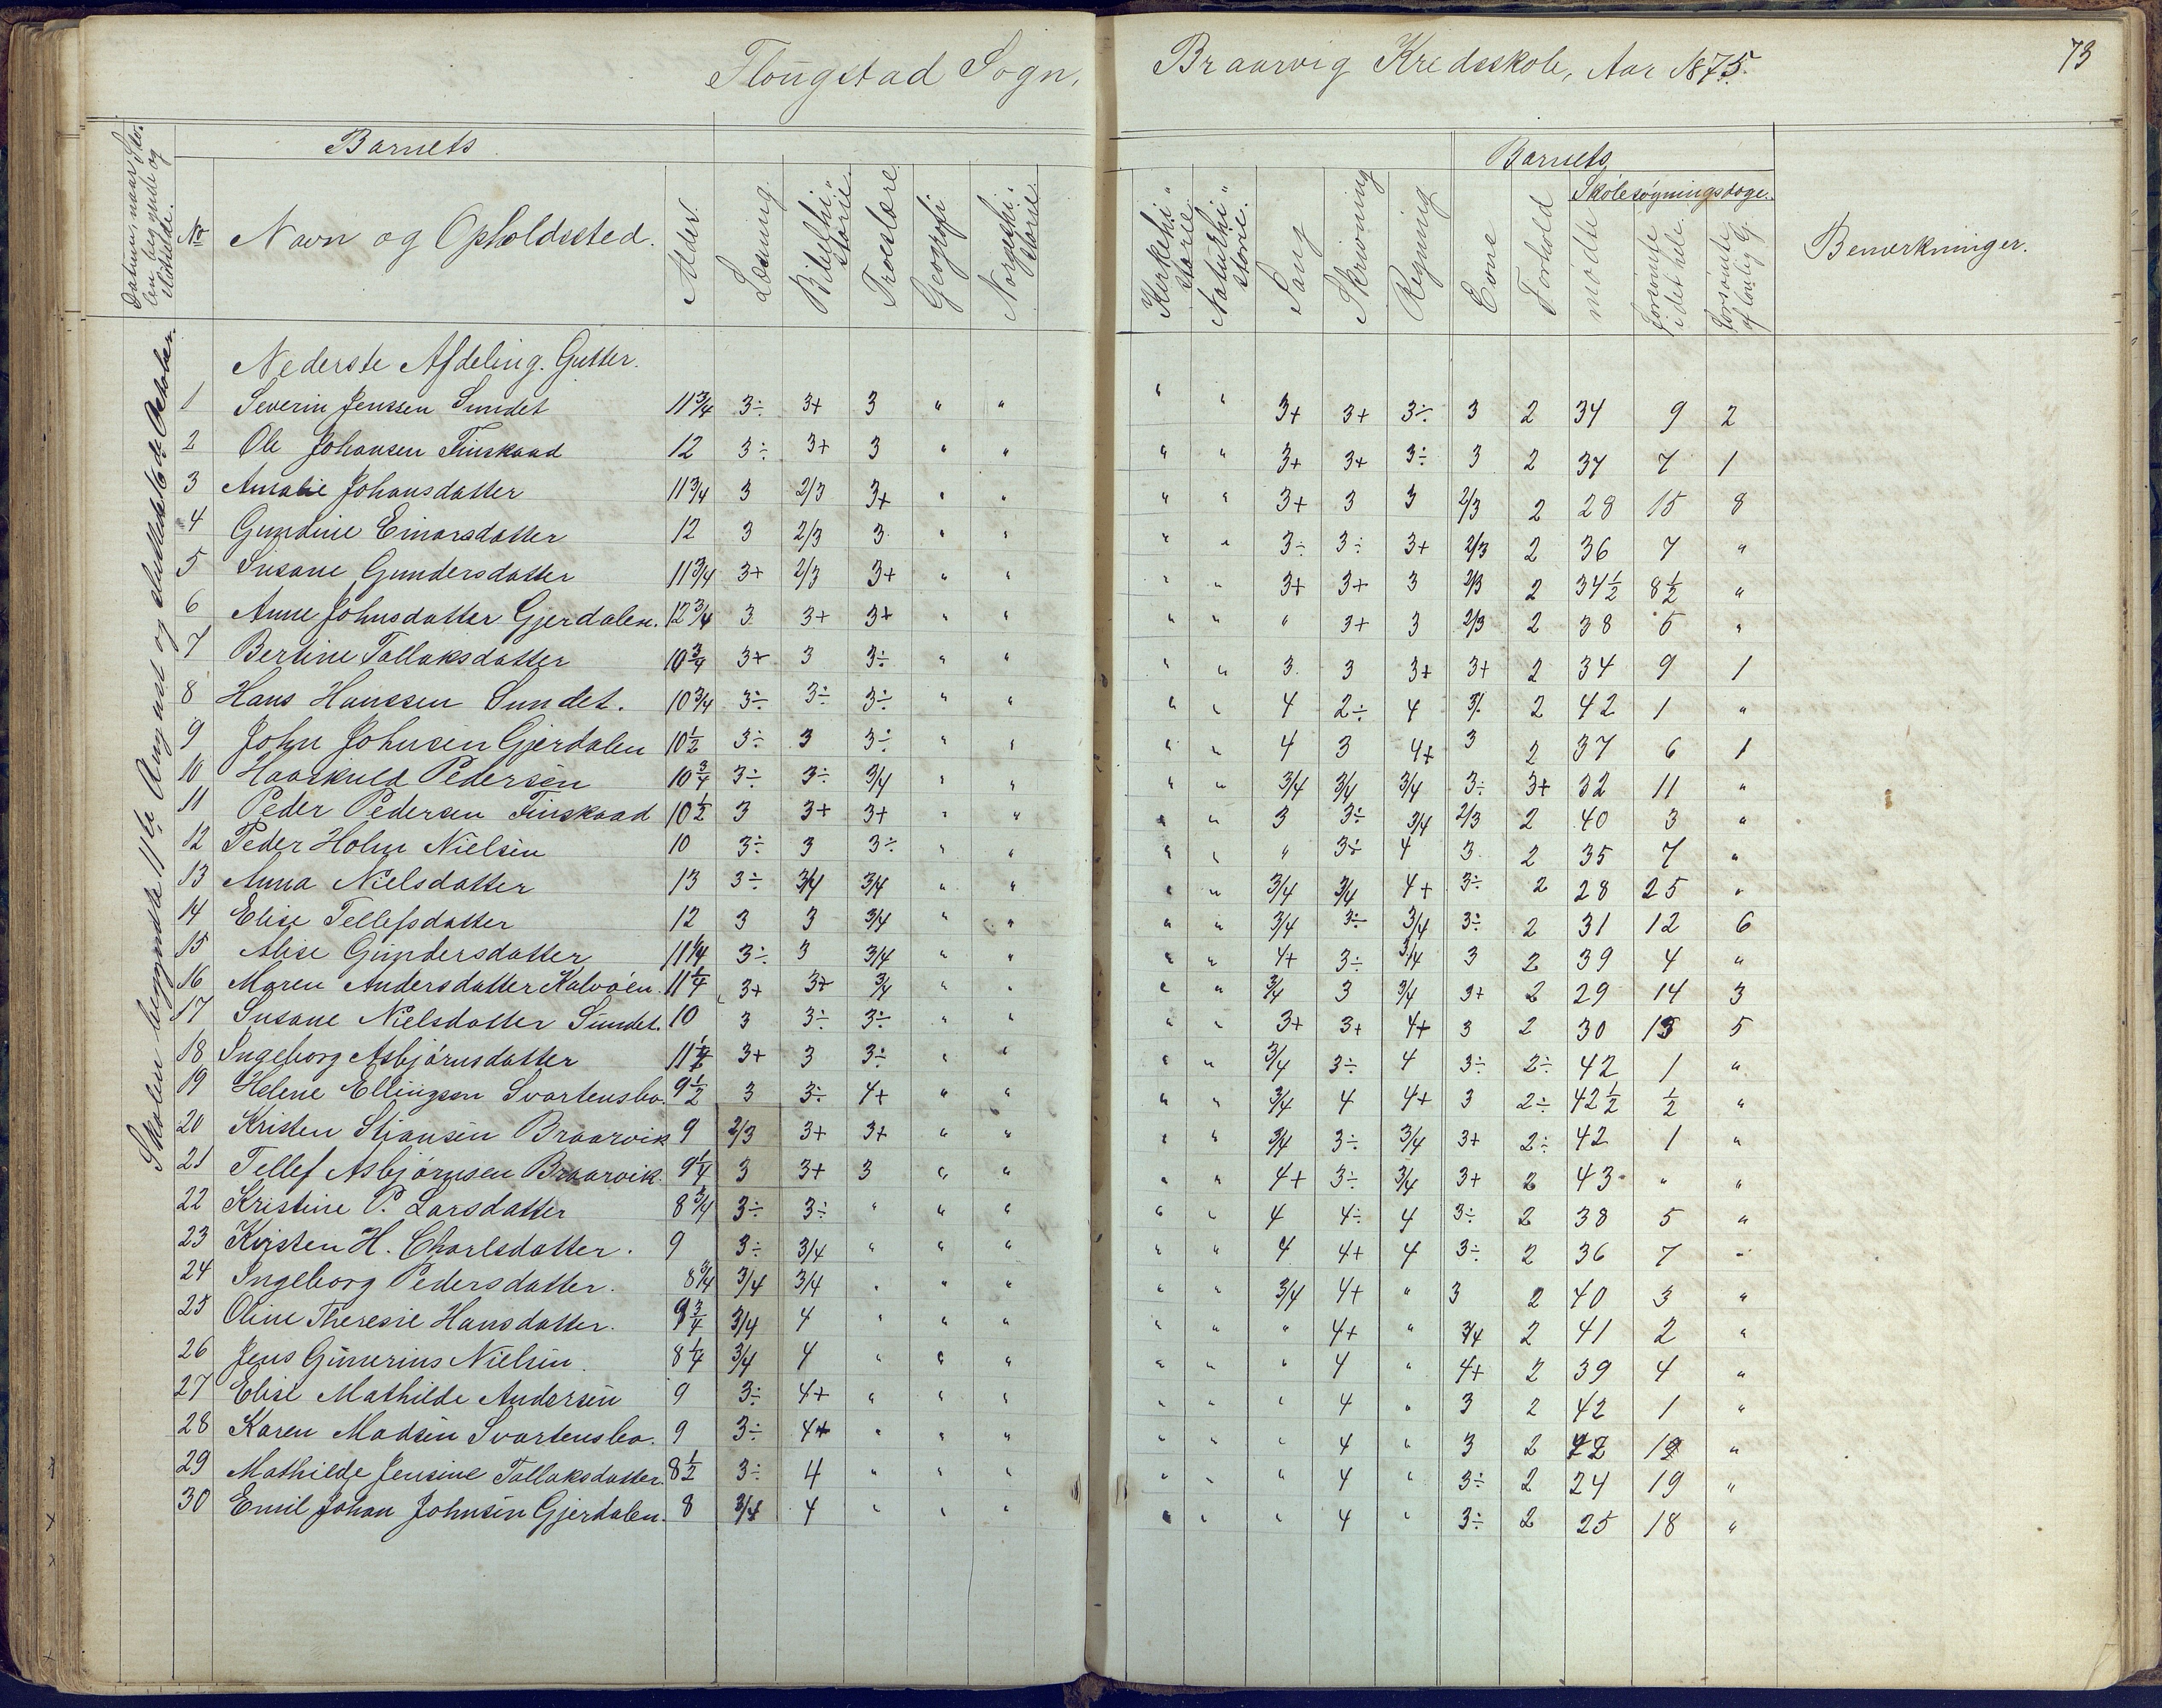 Flougstad Sogn,
Braarvig Kredsskole, Aar 1875.
73
Datum, naar Sko-
len begyndte og
sluttede.
Barnets
No
Navn og Opholdssted.
Alder.
Læsning.
Bibelhi-
storie.
Troeslære
Geografi
Norgeshi-
storie.
Kirkehi-
storie.
Naturhi-
storie.
Sang
Skrivning
Regning
Barnets
Evne
Forhold
Skolesøgningsdage.
mødte
forsømte
i det hele.
forsømte
af lovlig G.
Bemærkninger.
Skolen begyndte 11te August og sluttede 16de October.
Nederste Afdeling. Gutter.
1 Severin Jenssen Sundet 11 3/4 3÷ 3+ 3 " " " " 3+ 3+ 3÷ 3 2 34 9 2
2 Ole Johansen Finskaad 12 3÷ 3+ 3 " " " " 3+ 3+ 3÷ 3 2 37 7 1
3 Amalie Johansdatter 11 3/4 3 2/3 3+ " " " " 3+ 3 3 2/3 2 28 15 8
4 Gundine Einarsdatter 12 3 2/3 3 " " " " 3÷ 3÷ 3+ 2/3 2 36 7 "
5 Susane Gundersdatter 11 3/4 3+ 2/3 3+ " " " " 3+ 3+ 3 2/3 2 34 1/2 8 1/2 "
6 Anne Johnsdatter Gjerdalen. 12 3/4 3 3+ 3+ " " " " " 3+ 3 2/3 2 38 5 "
7 Bertine Tallaksdatter 10 3/4 3+ 3 3÷ " " " " 3 3 3+ 3+ 2 34 9 1
8 Hans Hanssen Sundet. 10 3/4 3÷ 3÷ 3÷ " " " " 4 2÷ 4 3÷ 2 42 1 "
9 John Johnsen Gjerdalen 10 1/2 3÷ 3 3÷ " " " " 4 3 4+ 3 2 37 6 1
10 Haaskuld Pedersen 10 3/4 3÷ 3÷ 3/4 " " " " 3/4 3/4 3/4 3÷ 3+ 32 11 "
11 Peder Pedersen Finskaad 10 1/2 3 3+ 3+ " " " " 3 3÷ 3/4 2/3 2 40 3 "
12 Peder Holm Nielsen 10 3÷ 3 3÷ " " " " " 3÷ 4 3 2 35 7 "
13 Anna Nielsdatter 13 3÷ 3/4 3/4 " " " " 3/4 3/4 4+ 3÷ 2 28 25 "
14 Elise Tellefsdatter 12 3 3 3/4 " " " " 3/4 3÷ 3/4 3÷ 2 31 12 6
15 Alise Gundersdatter 11 1/4 3÷ 3 3/4 " " " " 4+ 3÷ 3/4 3 2 39 4 "
16 Maren Andersdatter Kalvöen. 11 1/4 3+ 3+ 3/4 " " " " 3/4 3 3/4 3+ 2 29 14 3
17 Susane Nielsdatter Sundet. 10 3 3÷ 3÷ " " " " 3+ 3+ 4+ 3 2 30 13 5
18 Ingeborg Asbjörnsdatter 11 1/2 3+ 3 3÷ " " " " 3/4 3÷ 4 3÷ 2÷ 42 1 "
19 Helene Ellingsen Svartensbo. 9 1/2 3 3÷ 4+ " " " " 3/4 4 4+ 3 2÷ 42 1/2 1/2 "
20 Kristen Stiansen Braarvik 9 2/3 3+ 3+ " " " " 3/4 3÷ 3/4 3+ 2÷ 42 1 "
21 Tellef Asbjörnsen Braarvik. 9 1/4 3 3+ 3 " " " " 4+ 3÷ 3/4 3+ 2 43 " "
22 Kristine P. Larsdatter 8 3/4 3÷ 3÷ " " " " " 4 4÷ 4 3÷ 2 38 5 "
23 Kirsten H. Charlsdatter. 9 3÷ 3/4 " " " " " 4 4+ 4 3÷ 2 36 7 "
24 Ingeborg Pedersdatter. 8 3/4 3/4 3/4 " " " " " 3/4 4+ " 3 2 40 3 "
25 Oline Theresie Hansdatter. 9 3/4 3/4 4 " " " " " " 4+ " 3/4 2 41 2 "
26 Jens Gunerius Nielsen. 8 1/4 3/4 4 " " " " " " 4 " 4+ 2 39 4 "
27 Elise Mathilde Andersen 9 3÷ 4+ " " " " " " 4 " 3 2 42 1 "
28 Karen Madsen Svartensbo. 9 3÷ 4+ " " " " " " 4 " 3 2 42 12 "
29 Mathilde Jensine Tallaksdatter. 8 1/2 3÷ 4 " " " " " " 4 " 3÷ 2 24 19 "
30 Emil Johan Johnsen Gjerdalen. 8 3/4 4 " " " " " " 4 " 3÷ 2 25 18 "